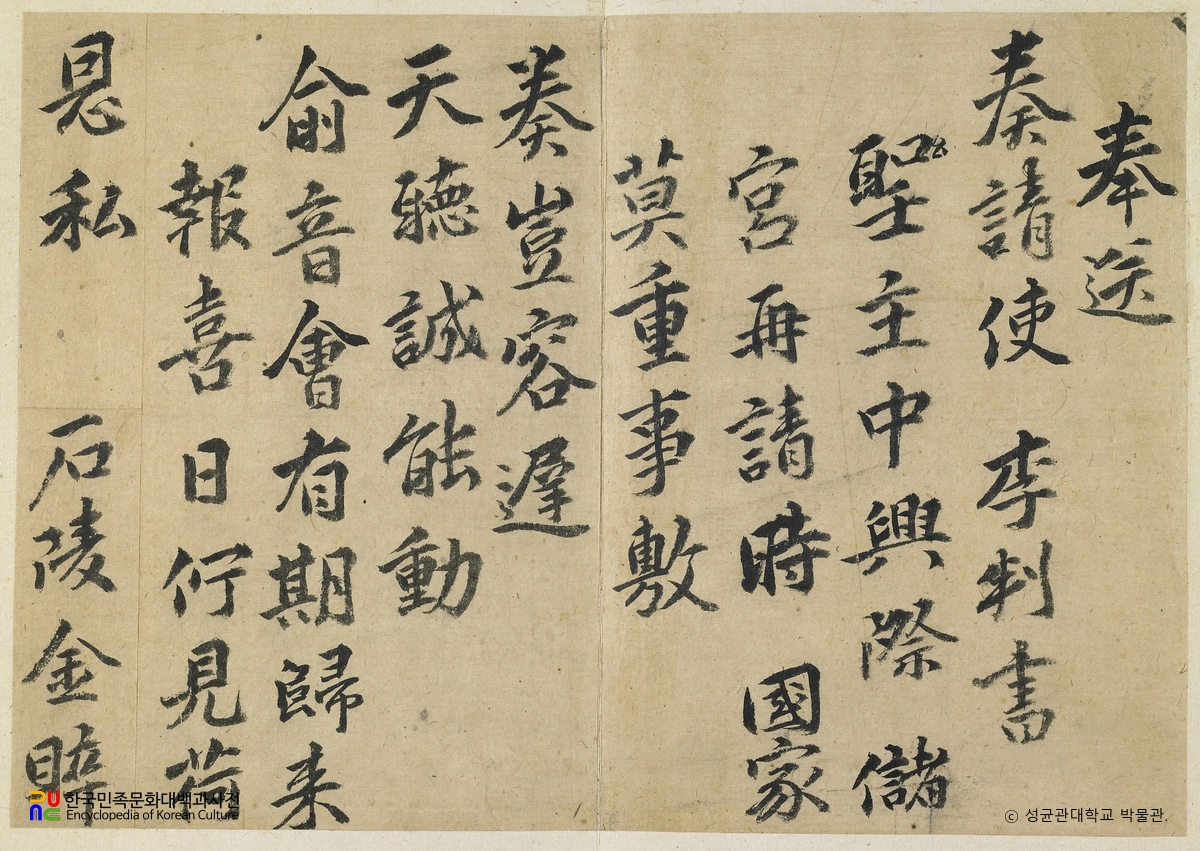 奉送
奏請使 李判書
聖主中興際 儲
宮再請時 國家
莫重事敷
奏豈容遲
天聽誠能動
俞音會有期歸来
報喜日佇見荷
恩私 石陵 金晬
한국민족문화대백과사전
Encyclopedia of Korean Culture
© 성균관대학교 박물관.